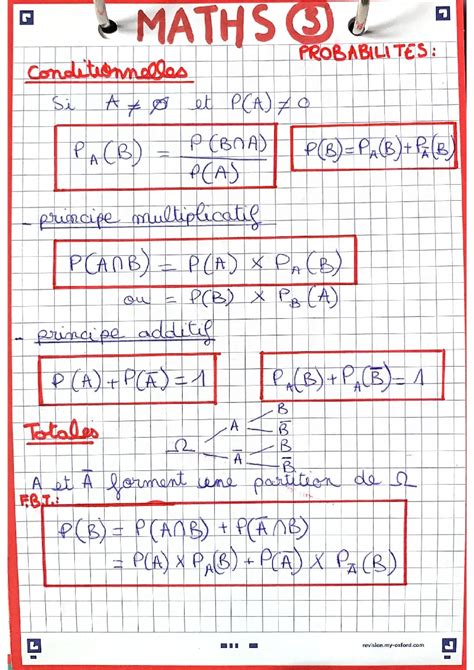 MATHS ③
PROBABILITES:
Conditionnelles
Si A ≠ ∅ et P(A) ≠ 0
P_A(B) = P(B∩A) / P(A)
P(B) = P_A(B) + P_Ā(B)
- principe multiplicatif
P(A∩B) = P(A) × P_A(B)
ou = P(B) × P_B(A)
- principe additif
P(A) + P(Ā) = 1
P_A(B) + P_A(B̄) = 1
Totales
Ω
A
B
B̄
Ā
B
B̄
A et Ā forment une partition de Ω
F.B.T.:
P(B) = P(A∩B) + P(Ā∩B)
= P(A) × P_A(B) + P(Ā) × P_Ā(B)
revision.my-oxford.com